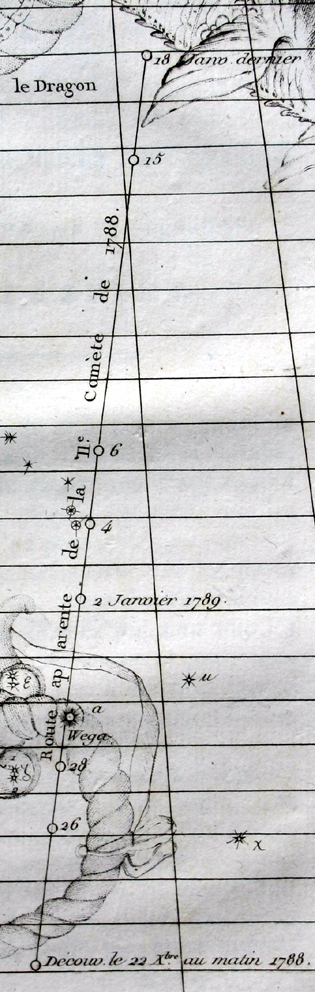 18 Janv. dernier
le Dragon
15
Route ap arente de la II.e Comète de 1788.
6
4
2 Janvier 1789.
ε
u
a
Wega
28
ζ
26
χ
Découv. le 22 X.bre au matin 1788.